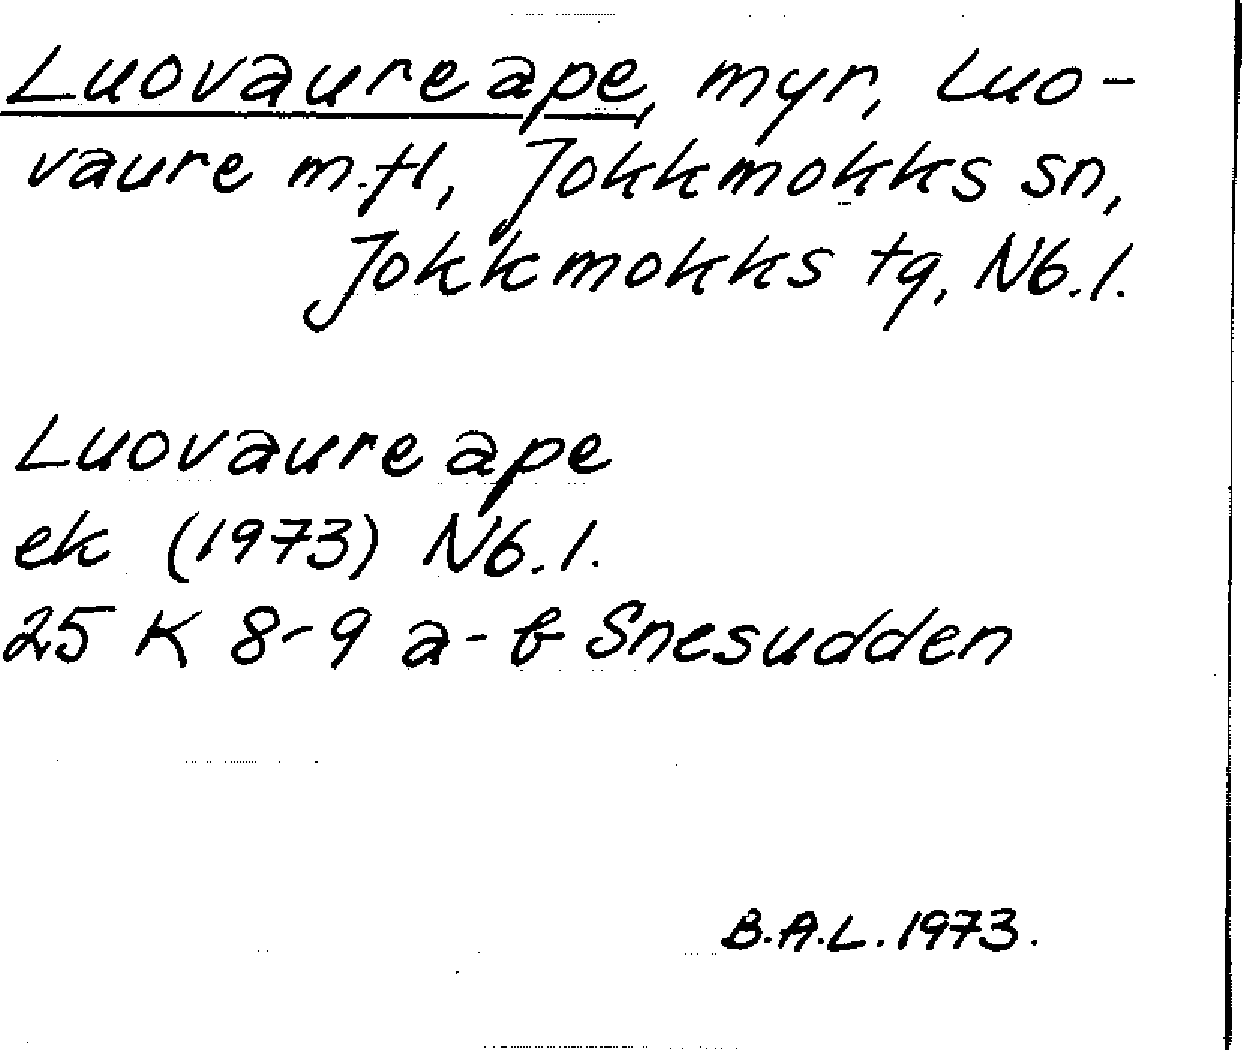 Luovaureape, myr, Luo-
vaure m.fl, Jokkmokks sn,
Jokkmokks tg, Nb.l.
Luovaureape
ek (1973) Nb.l.
25 K 8-9 a-b Snesudden
B.A.L. 1973.